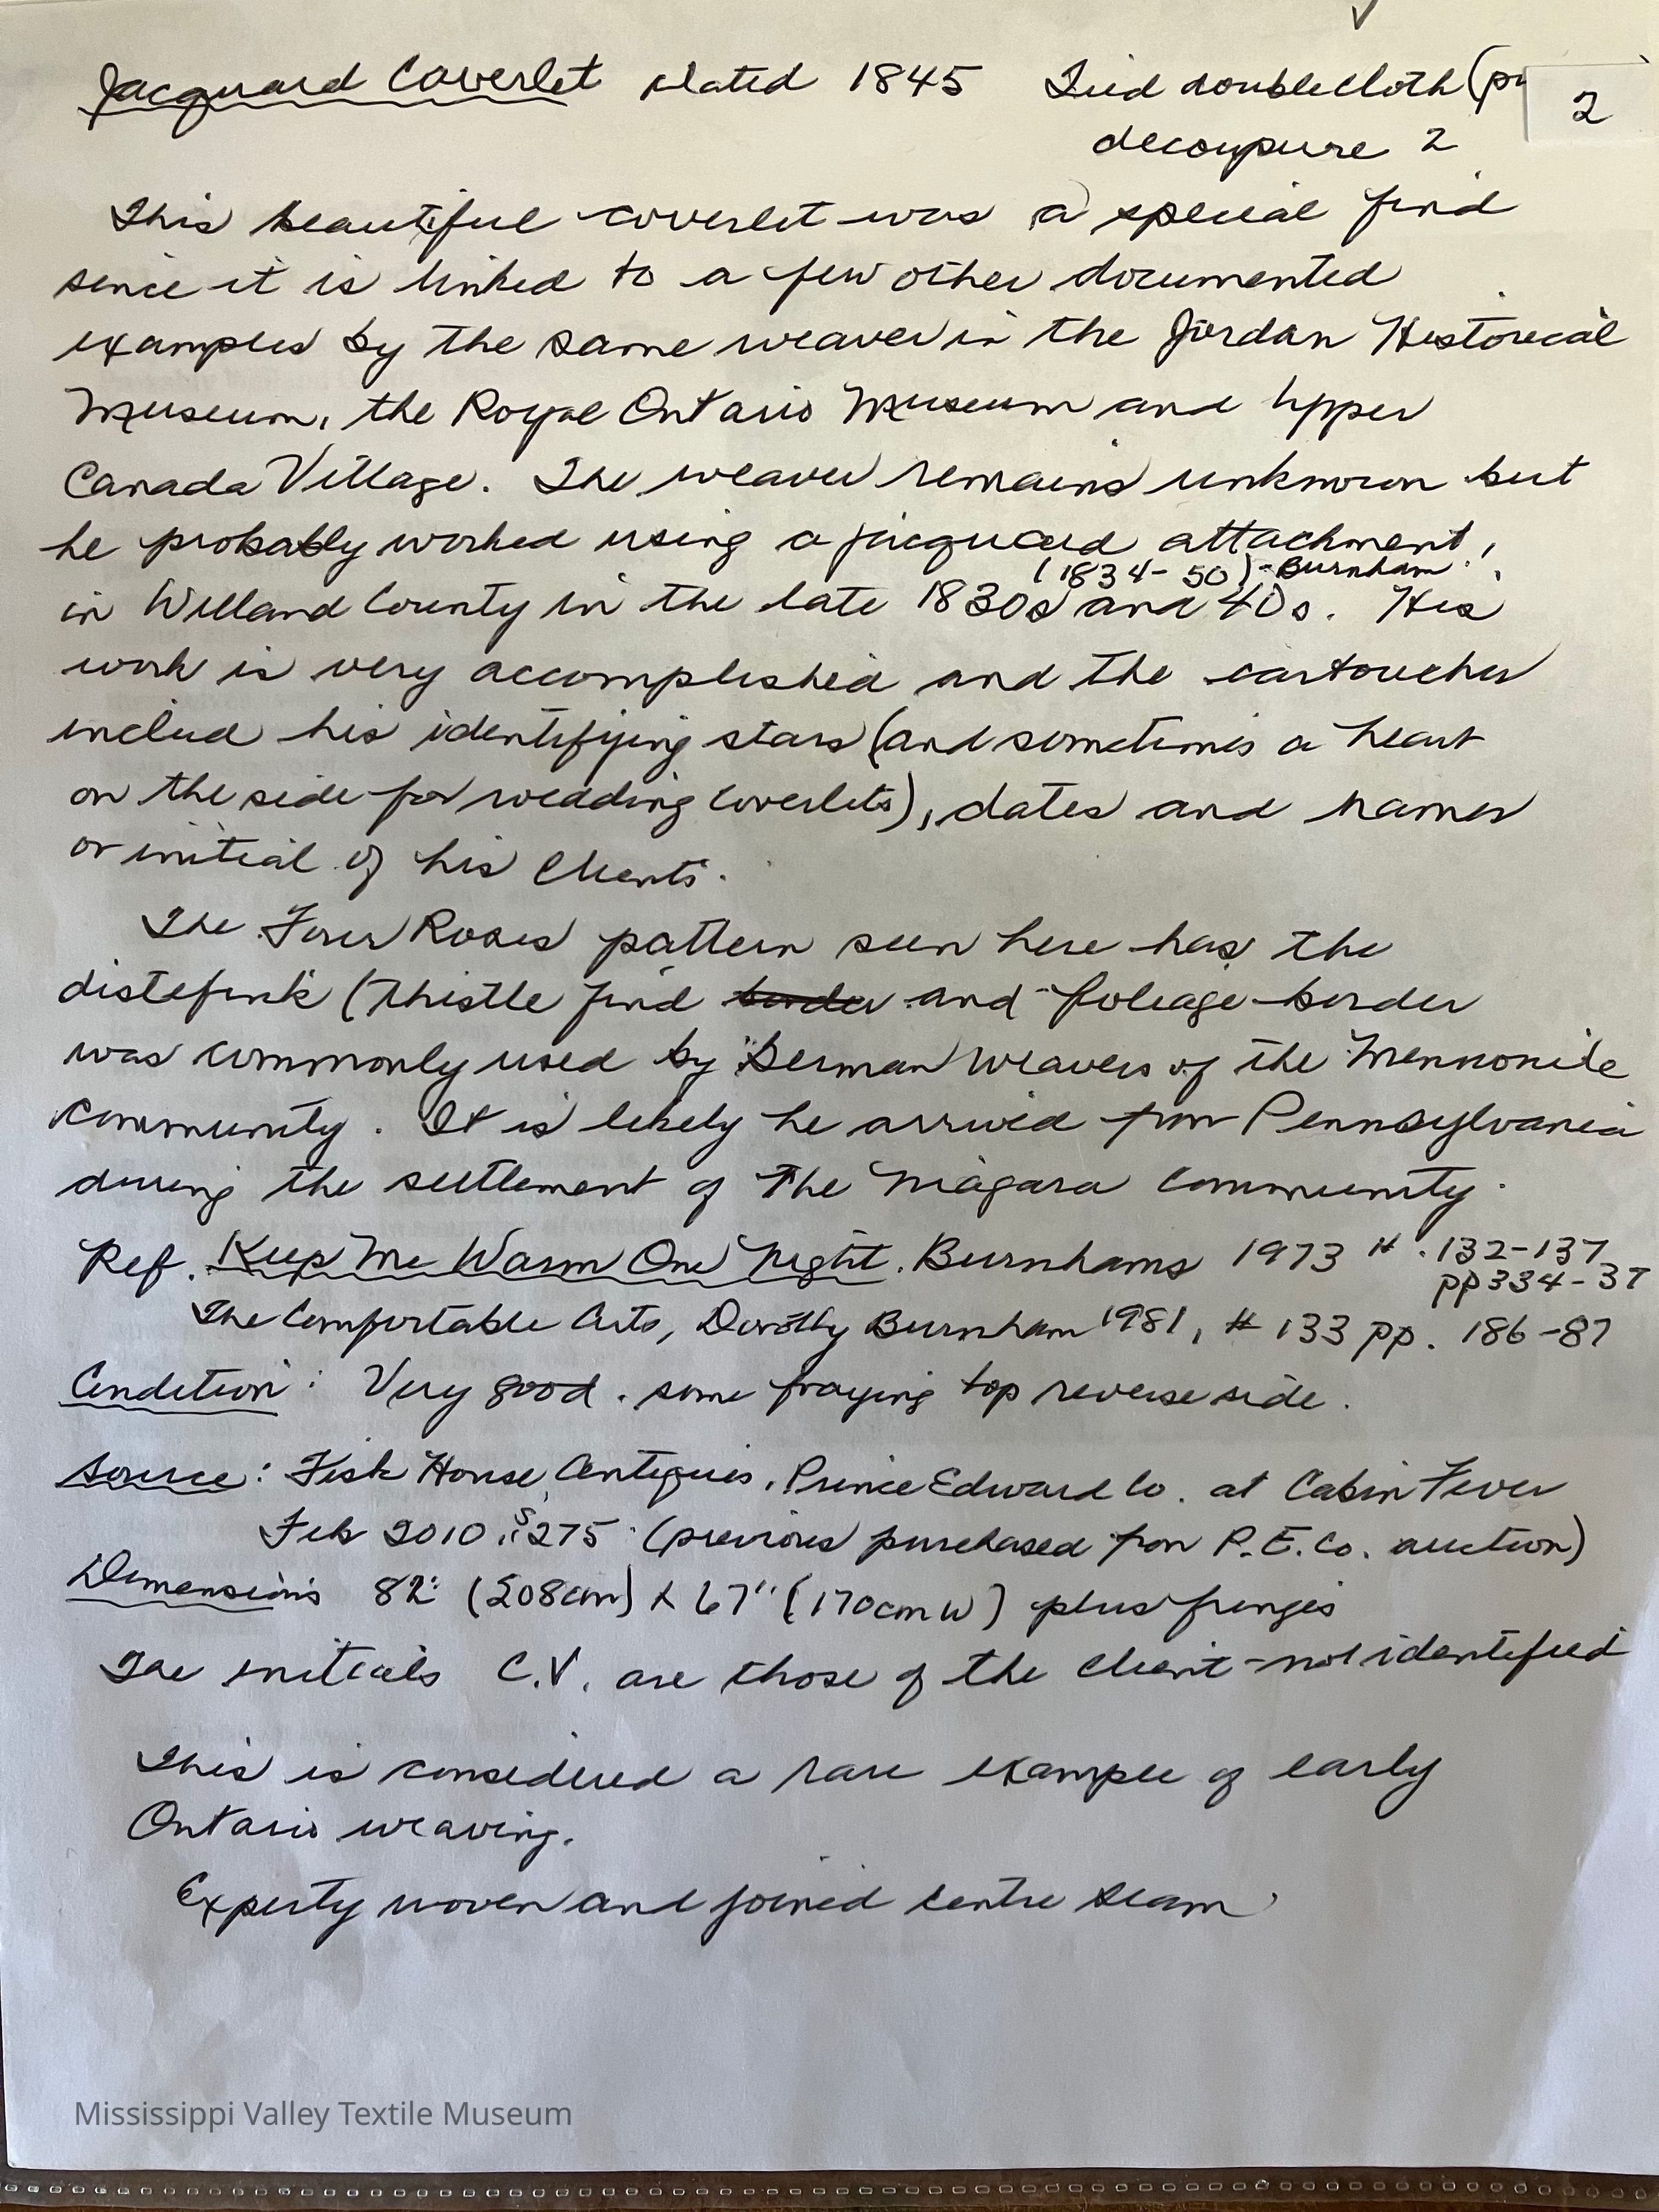 Jacquard Coverlet dated 1845 Tied doublecloth (p
2
decoupure 2
This beautiful coverlet was a special find
since it is linked to a few other documented
examples by the same weaver in the Jordan Historical
Museum, the Royal Ontario Museum and Upper
Canada Village. The weaver remains unknown but
he probably worked using a jacquard attachment,
(1834-50)-Burnham
in Welland County in the late 1830s and 40s. His
work is very accomplished and the cartouches
includ his identifying stars (and sometimes a heart
on the side for wedding coverlets), dates and names
or initial of his clients.
The Four Roses pattern seen here has the
distefink (thistle find border and foliage border
was commonly used by German weavers of the Mennonite
community. It is likely he arrived from Pennsylvania
during the settlement of the Niagara community.
Ref. Keep Me Warm One Night. Burnhams 1973 #. 132-137
pp 334-37
The Comfortable Arts, Dorothy Burnham 1981, # 133 pp. 186-87
Condition: Very good. some fraying top reverse side.
Source: Fisk House Antiques, Prince Edward Co. at Cabin Fever
Feb 2010. $275 (previous purchased from P.E.Co. auction)
Dimensions 82" (208cm) x 67" (170cm w) plus fringes
The initials C.V. are those of the client - not identified
This is considered a rare example of early
Ontario weaving.
Experty woven and joined centre seam
Mississippi Valley Textile Museum